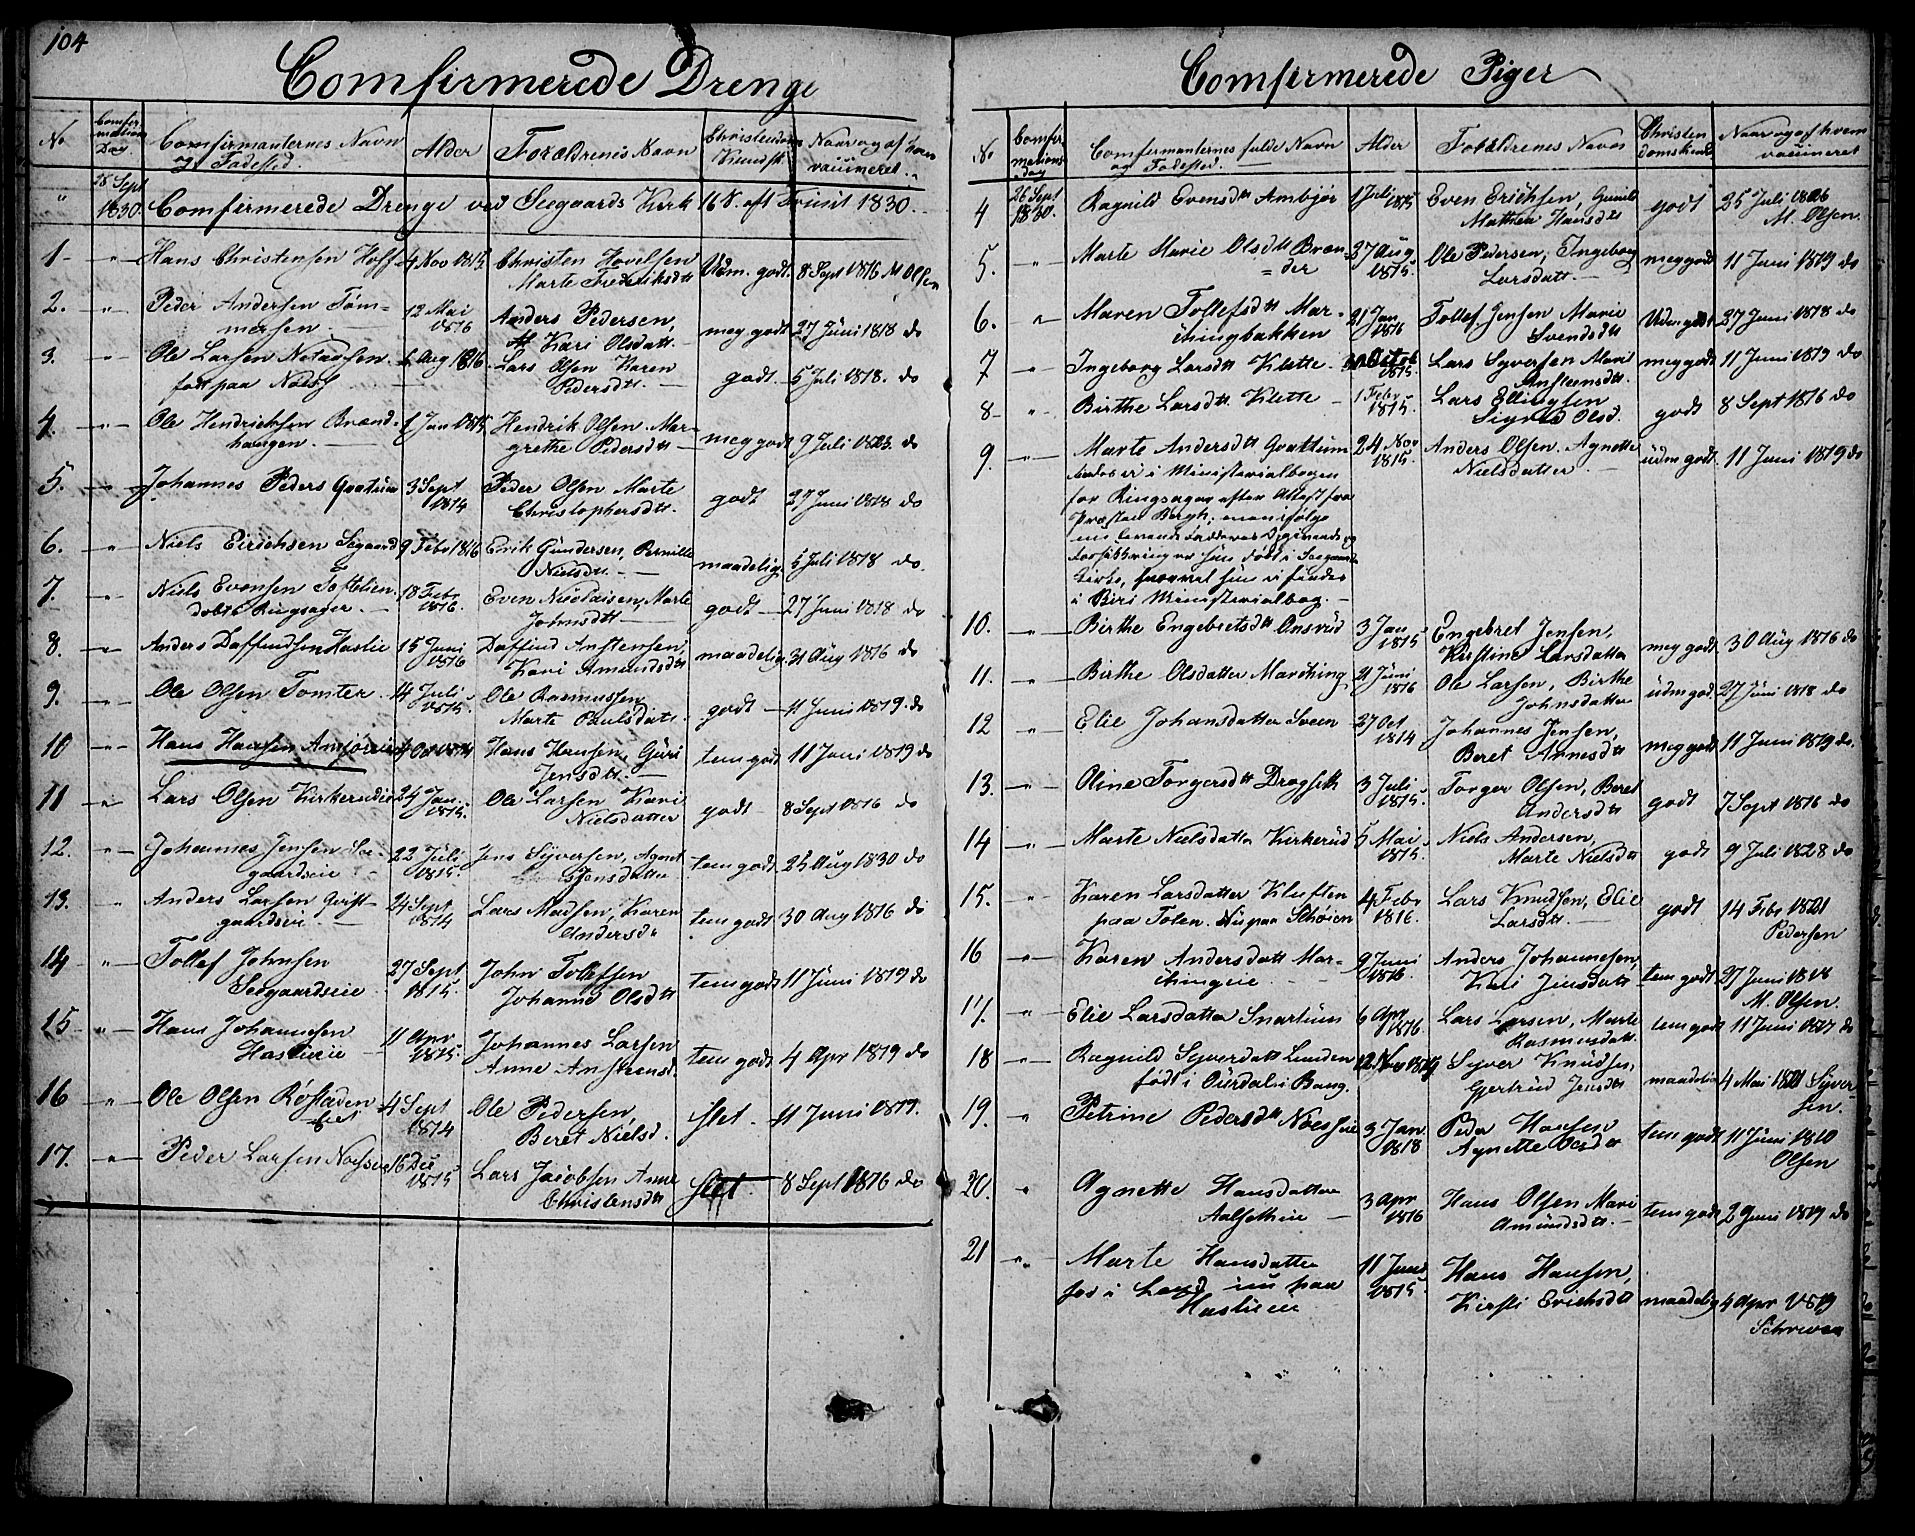 104
Comfirmerede Drenge
No
Comfir-
mations
Dag.
Comfirmanternes Navn
og Fødested.
Alder
Forældrenes Navn
Christendoms
Kundsk.
Naar og af hvem
vaccineret.
" 26 Sept
1830. Comfirmerede Drenge ved Seegaards Kirk 16 S. aft Trinit 1830.
1 - " - Hans Christensen Hoff 4 Nov 1815 Christen Hovelsen
Marte Frederiksdtt Udm. godt. 8 Sept 1816 M Olsen
2. - " - Peder Andersen Tøm-
mersen. 12 Mai
1816 Anders Pedersen,
Kari Olsdatt. meg godt 27 Juni 1818 do
3. " Ole Larsen
født paa 6 Aug 1816 Lars Olsen Karen
Pedersdtt. godt. 5 Juli 1818. do
4. - " - Ole Hendrichsen Brænd-
haugen. 1 Jan 1815 Hendrik Olsen. Mar-
grethe Pedersdtt meg godt 9 Juli 1823. do
5. - " - Johannes Peders Qvatum 3 Sept
1814 Peder Olsen Marte
Christophersdtt. godt 27 Juni 1818 do
6. - " - Niels Eirichsen Segaard 9 Febr 1816 Erik Gundersen, Pernille
Nielsdtt. maadelig 5 Juli 1818 do.
7. - " - Niels Evensen
døbt Ringsager. 18 Febr
1816. Even Nicolaisen, Marte
Johnsdtt godt - 27 Juni 1818 do
8. - " - Anders Daffindsen Haslie 15 Juni
1816 Daffind Anstensen,
Kari Amundsdtt maadelig 31 Aug 1816 do
9. - " - Ole Olsen Tomter. 14 Juli
1815. Ole Rasmussen
Marte Paulsdatt. godt - 11 Juni 1819. do
10 - " - Hans Hansen 1814 Hans Hansen, Guri
Jensdtt. tem godt 11 Juni 1819 do
11 - " - Lars Olsen Kirkerudie 24 Jan.
1815. Ole Larsen Kari
Nielsdatter godt - 8 Sept 1816 do
12. - " - Johannes Jensen See-
gaardseie 22 Juli
1815. Jens Syversen, Agnet
Jensdatter tem godt 25 Aug 1830 do
13. " Anders Larsen Qvist-
gaardseie. 24 Sept
1814 Lars Madsen, Karen
Andersd tem godt 30 Aug 1816 do
14 - " - Tollef Johnsen
Seegaardseie 27 Sept
1815. John Tollefsen
Johanne Olsdtt tem godt 11 Juni 1819 do
15 - " - Hans Johannesen
Haslieeie 11 Apr
1815. Johannes Larsen
Anne Anstensd. tem godt 4 Apr 1819 do
16 " Ole Olsen Røstaden
eiet 4 Sept
1814 Ole Pedersen,
Beret Nielsd. slet. 11 Juni 1819.
17. - " - Peder Larsen Næsseie 16 Dec
1815 Lars Jacobsen Anne
Christensdtt slet. 8 Sept 1816 do
Comfirmerede Piger
No
Comfir
mations
dag
Comfirmanternes fulde Navn
og Fødested.
Alder
Forældrenes Navn
Christen
domskund
Naar og af hvem
vaccineret
4 26 Sept
1830. Ragnild Evensdtt Ambjør 1 Juli 1815 Even Erichsen, Gunild
Mathea Hansdtt godt 25 Juli 1826
M. Olsen.
5. " Marte Marie Olsdtt Bræn
=der 27 Aug
1815. Ole Pedersen, Ingeborg
Larsdatt. meg godt 11 Juni 1819 do
6. " Maren Tollefsdtt Mar-
chingbakken 21 Jan
1816 Tollef Jensen Marie
Svendsdtt Udm godt 27 Juni 1818 do
7 - " - Ingeborg Larsdtt Klette Octob
1815. Lars Syversen Mari
Anstensdtt. meg godt 11 Juni 1819 do
8 - " - Birthe Larsdtt. Klette - 1 Febr
1815. Lars Ellingsen
Sigrid Olsd. godt 8 Sept 1816 do
9. - " - Marte Andersdtt Qvattum
døbes er i Ministerialbogen
for Ringsager efter Attest fra
Præsten Bergh; men ifølge
Fadderes Digivende og
Forsikkringer hun født i Seegaard
Kirke, hun ei findes
i Biri Ministerialbog. - 24 Nov
1815. Anders Olsen. Agnette
Nielsdatter udm godt. 11 Juni 1819 do
10. - " - Birthe Engebretsdtt Onsrud 3 Jan
1815 Engebret Jensen,
Kirstine Larsdatter meg godt 30 Aug 1816 do
11. " Birthe Olsdatter Marching 21 Juni
1816 Ole Larsen, Birthe
Johnsdatter udm god. 27 Juni 1818 do
12 - " - Elie Johansdatter Sveen 27 Oct
1814 Johannes Jensen,
Beret Arnesdtt meg godt 11 Juni 1819 do.
13. - " - Oline Torgersdtt Dragseth 3 Juli
1815. Torger Olsen, Beret
Andersdtt godt 7 Sept 1816 do
14 - " - Marte Nielsdatter Kirkerud 5 Mai
1815. Niels Andersen,
Marte Nielsd godt 9 Juli 1828 do
15. " Karen Larsdatter Kluften
paa Toten. Nu paa Schøien 4 Febr
1816. Lars Knudsen, Elie
Larsdtt. godt 14 Febr 1821
Pedersen
16 - " - Karen Andersdatt Mar-
chingeie 9 Juni
1816 Anders Johannesen,
Kari Jensdatt tem godt 27 Juni 1818
M. Olsen.
17. " Elie Larsdatter Snartum 6 Apr
1816. Lars Larsen, Marte
Rasmusdatt. tem godt 11 Juni do
18 - " - Ragnild Syverdatt Lunden
født i Ourdal i Bang. 12 Nov Syver Knudsen,
Gjertrud Jensdtt maadelig 4 Mai 1821 Syver-
sen.
19. " Petrine Pedersdtt Næsseie 3 Jan
1818 Peder Hansen
Agnette tem godt 11 Juni 1810
Olsen
20. " Agnette Hansdatter
Aalsetheie - 3 apr
1816 Hans Olsen Mari
Amundsdtt. - tem godt 2 Juni 1819 do
21 - " - Marte Hansdatter
før i Land nu paa
Haslieeie 11 Juni
1815. Hans Hansen,
Kirsti Erichsdtt maadelig 4 Apr 1819